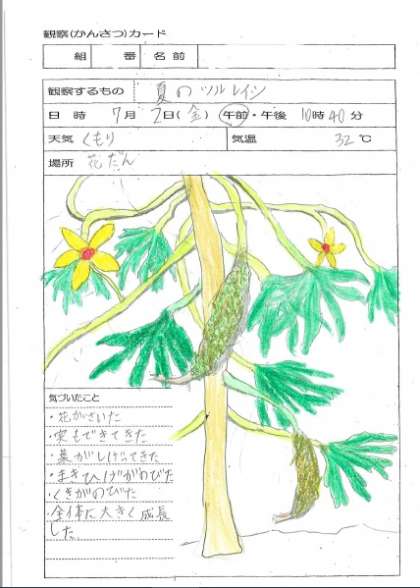 観察(かんさつ)カード
組 番 名前
観察するもの 夏のツルレイシ
日時 7月 2日(金) 午前・午後 10時40分
天気 くもり 気温 32℃
場所 花だん
気づいたこと
・花がさいた
・実もできてきた
・葉がしげってきた
・まきひげがのびた
・くきがのびた
・全体に大きく成長
した